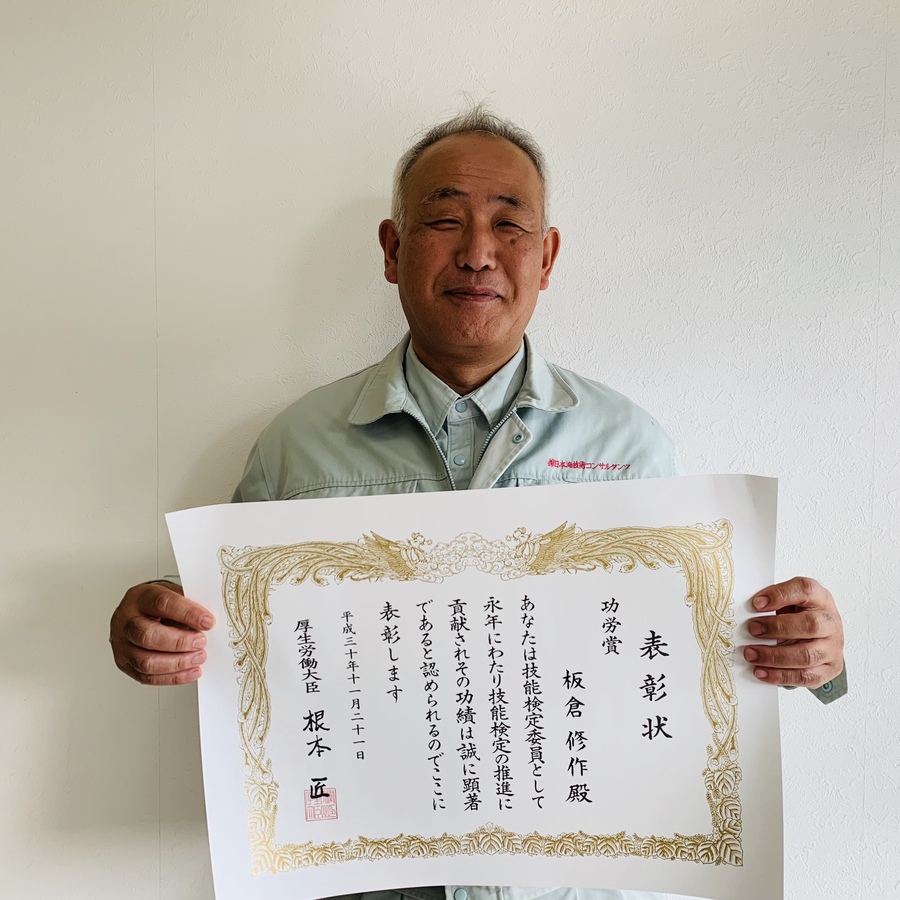 ㈱日本海技術コンサルタンツ
表彰状
功労賞
板倉 修作 殿
あなたは技能検定委員として
永年にわたり技能検定の推進に
貢献されその功績は誠に顕著
であると認められるのでここに
表彰します
平成三十年十一月二十一日
厚生労働大臣 根本 匠